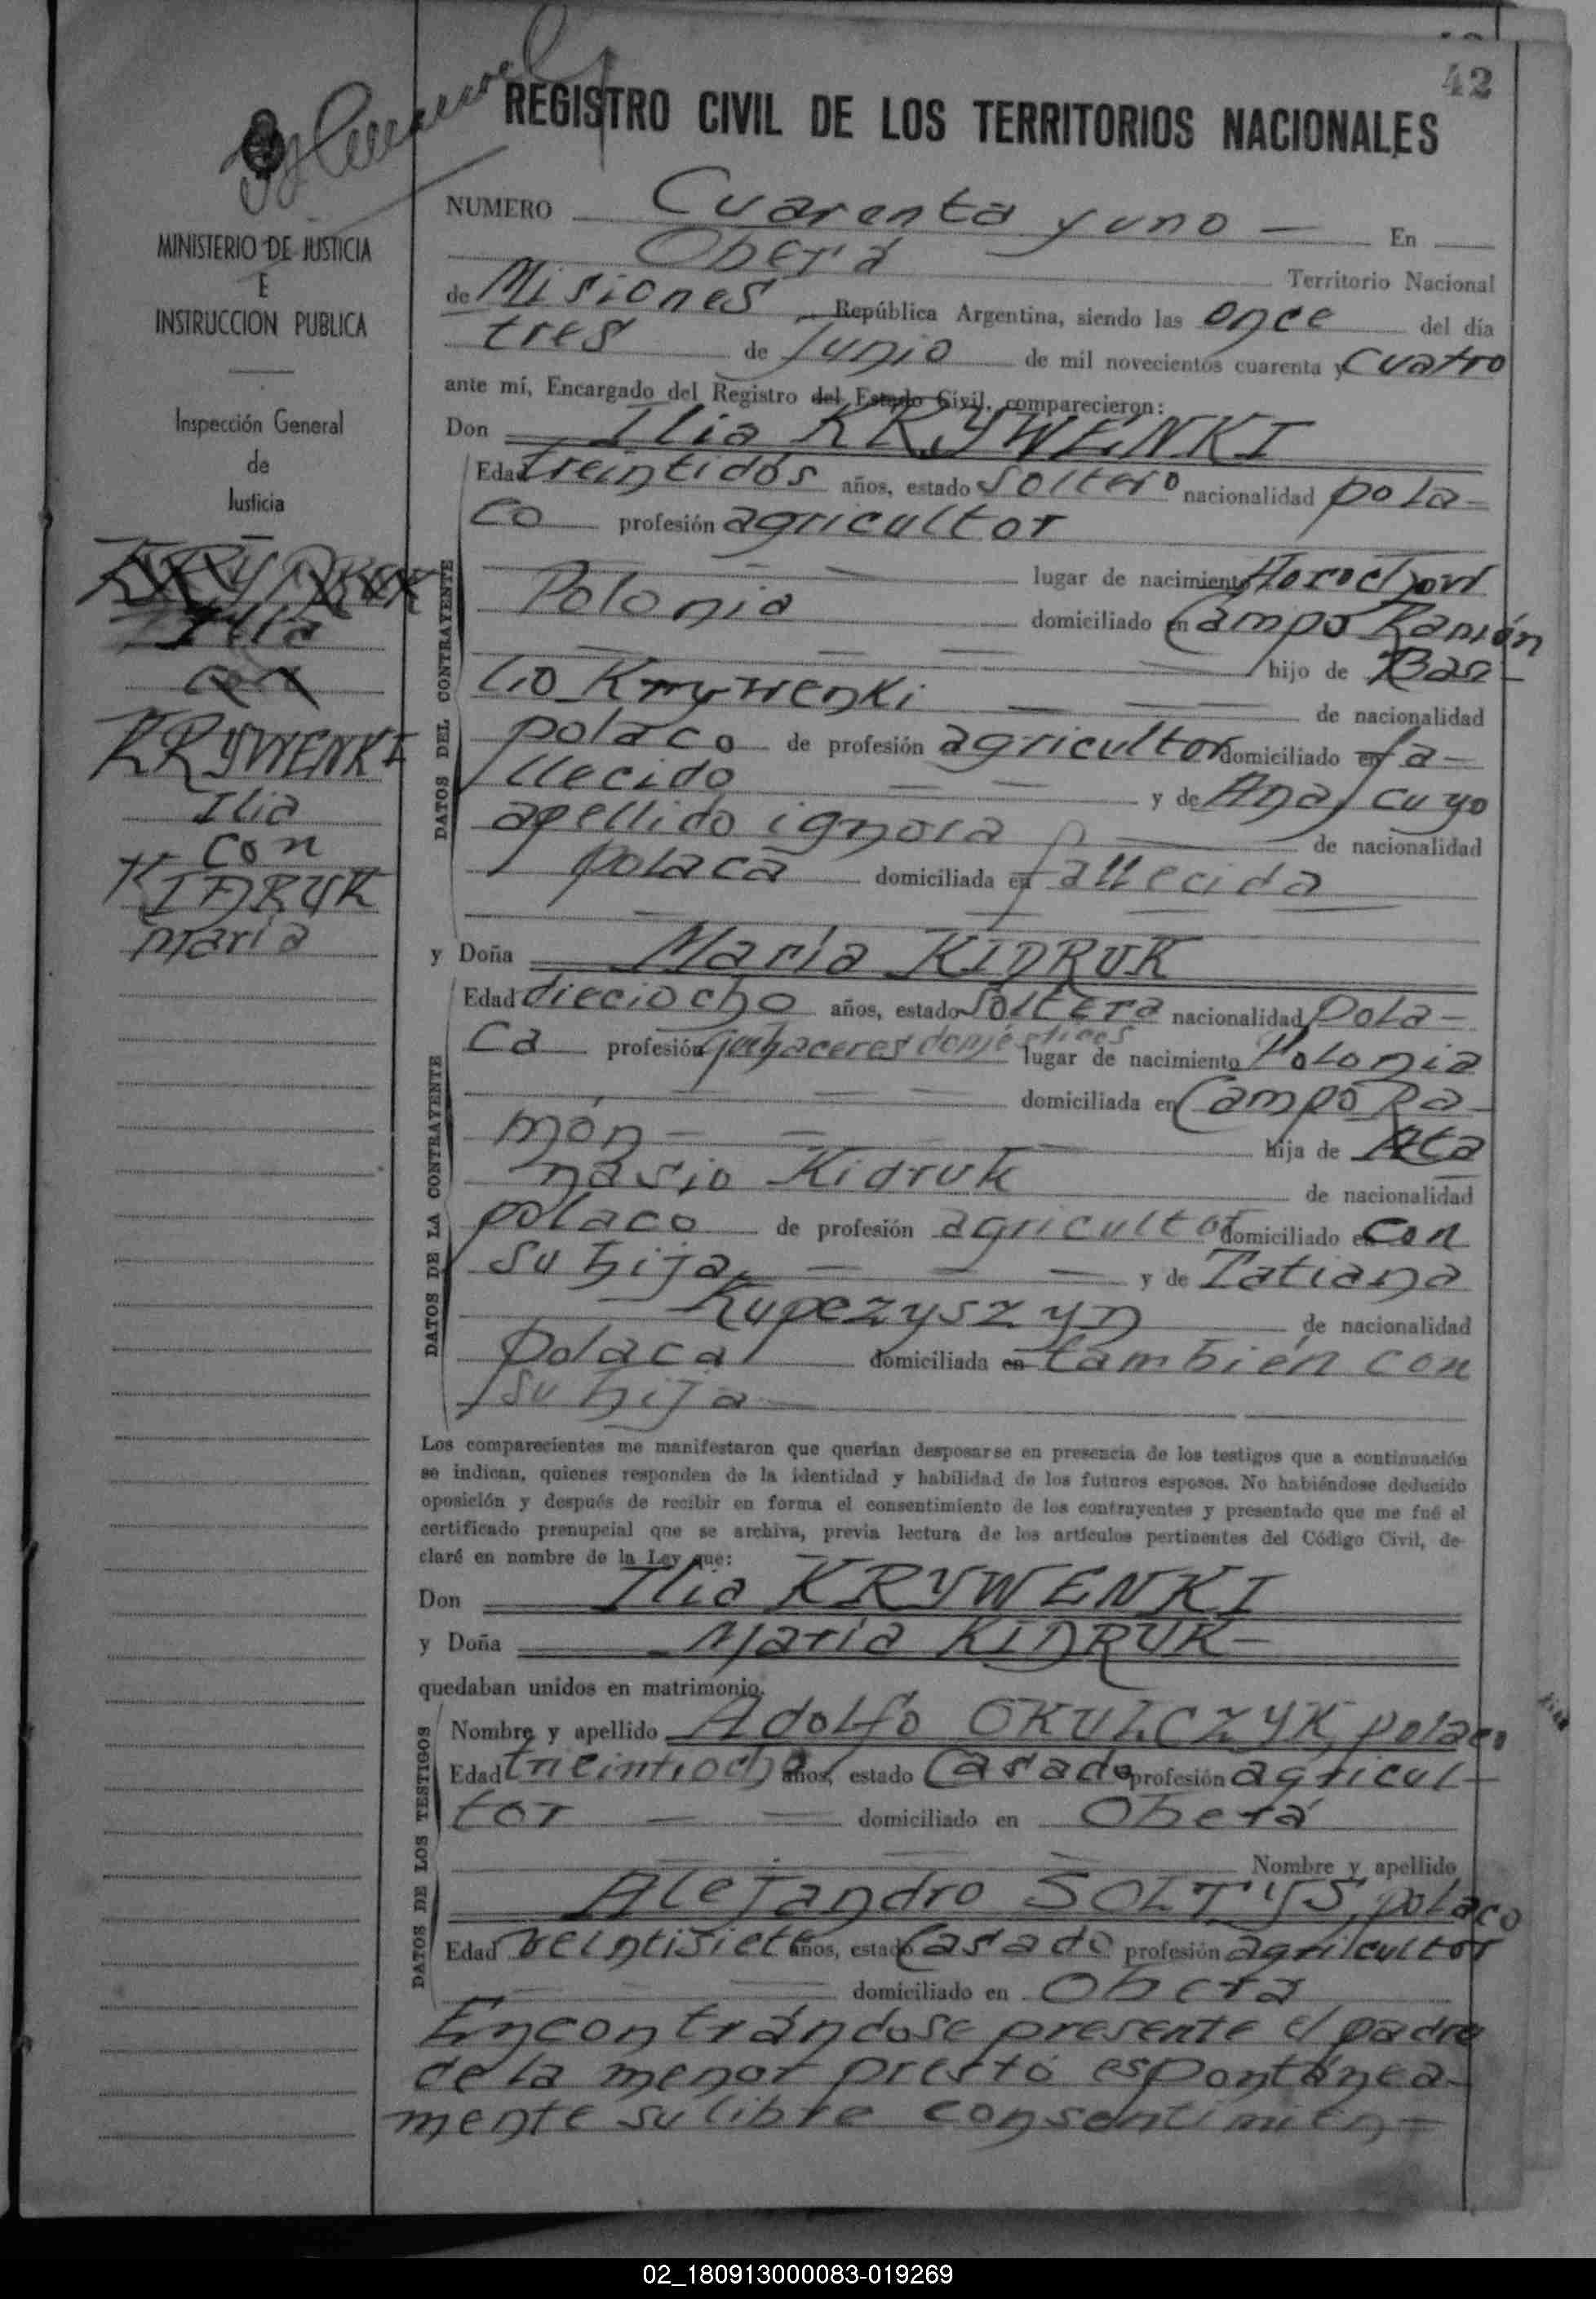 42
REGISTRO CIVIL DE LOS TERRITORIOS NACIONALES
MINISTERIO DE JUSTICIA
E
INSTRUCCION PUBLICA
Inspección General
de
Justicia
Ilia
con
KRYWENKI
Ilia
con
KIDRUK
María
NUMERO Cuarenta y uno — En
Oberá Territorio Nacional
de Misiones República Argentina, siendo las once del día
tres de Junio de mil novecientos cuarenta y cuatro
ante mí, Encargado del Registro del Estado Civil, comparecieron:
Don Ilia KRYWENKI
DATOS DEL CONTRAYENTE
Edad treintidós años, estado soltero nacionalidad pola-
co profesión agricultor
lugar de nacimiento
Polonia domiciliado en Campo Ramón
hijo de Basi-
lio Krywenki de nacionalidad
polaco de profesión agricultor domiciliado en fa-
llecido y de Ana, cuyo
apellido ignora de nacionalidad
polaca domiciliada en fallecida
y Doña María KIDRUK
DATOS DE LA CONTRAYENTE
Edad dieciocho años, estado soltera nacionalidad pola-
ca profesión quehaceres domésticos lugar de nacimiento Polonia
domiciliada en Campo Ra-
món hija de Ata
nasio Kidruk de nacionalidad
polaco de profesión agricultor domiciliado en con
su hija y de Tatiana
Kupezyszyn de nacionalidad
polaca domiciliada en también con
su hija
Los comparecientes me manifestaron que querían desposarse en presencia de los testigos que a continuación
se indican, quienes responden de la identidad y habilidad de los futuros esposos. No habiéndose deducido
oposición y después de recibir en forma el consentimiento de los contrayentes y presentado que me fué el
certificado prenupcial que se archiva, previa lectura de los artículos pertinentes del Código Civil, de-
claré en nombre de la Ley que:
Don Ilia KRYWENKI
y Doña María KIDRUK
quedaban unidos en matrimonio.
DATOS DE LOS TESTIGOS
Nombre y apellido Adolfo OKULCZYK, polaco
Edad treintiocho años, estado casado profesión agricul-
tor domiciliado en Oberá
Nombre y apellido
Alejandro SOLTYS, polaco
Edad veintisiete años, estado casado profesión agricultor
domiciliado en Oberá
Encontrándose presente el padre
de la menor prestó espontánea-
mente su libre consentimien-
02_180913000083-019269